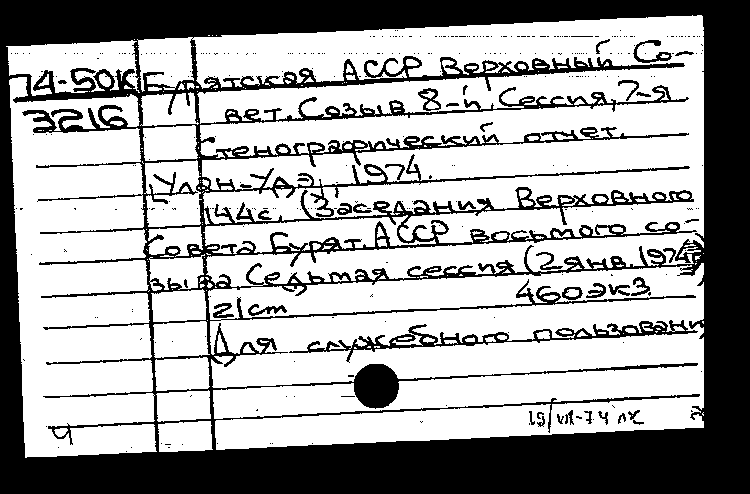 74-50К Бурятская АССР Верховный Со-
3216 вет. Созыв, 8-й. Сессия, 7-я
Стенографический отчет.
[Улан-Удэ], 1974.
144с. (Заседания Верховного
Совета Бурят. АССР восьмого со-
зыва. Седьмая сессия (2 янв. 1974г.)
21cm 460экз.
Для служебного пользовани
Ч 19/VII-74